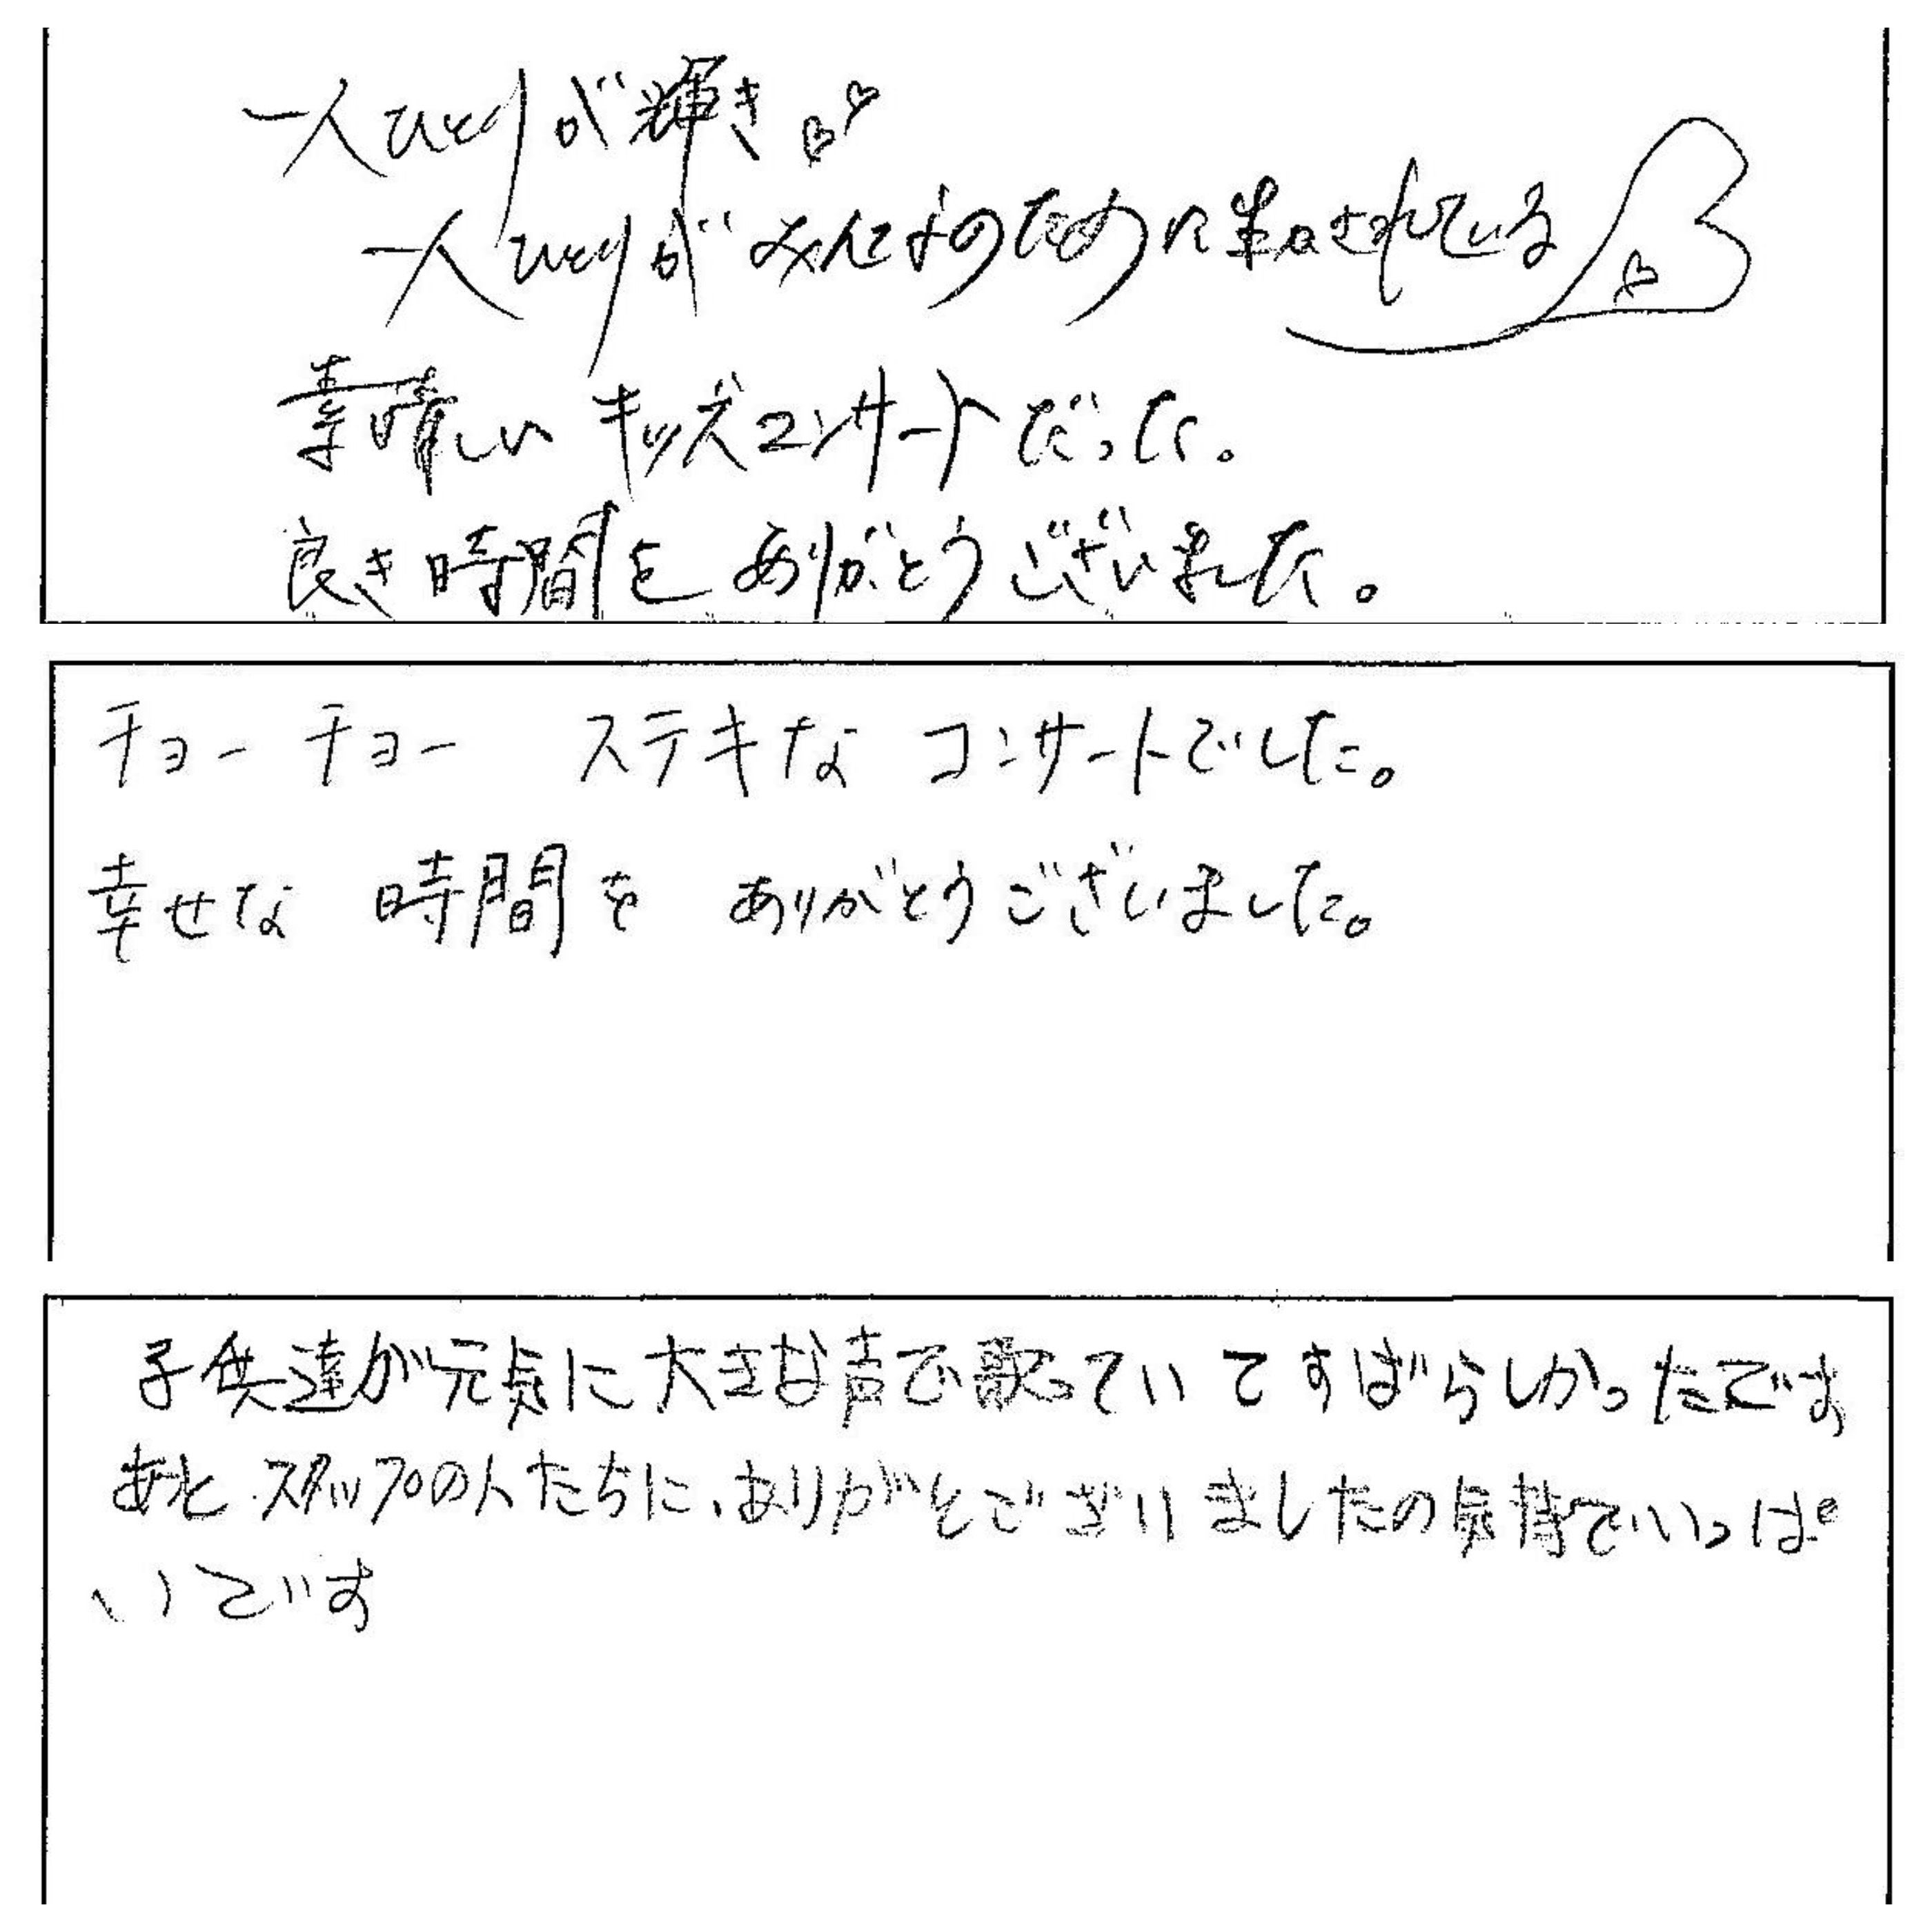 一人ひとりが輝き
一人ひとりがみんなのために生かされている
素晴しいキッズコンサートだった。
良き時間をありがとうございました。
チョーチョー ステキな コンサートでした。
幸せな 時間を ありがとうございました。
子供達が元気に大きな声で歌っていてすばらしかったです
あと、スタッフの人たちに、ありがとございましたの気持でいっぱ
いです